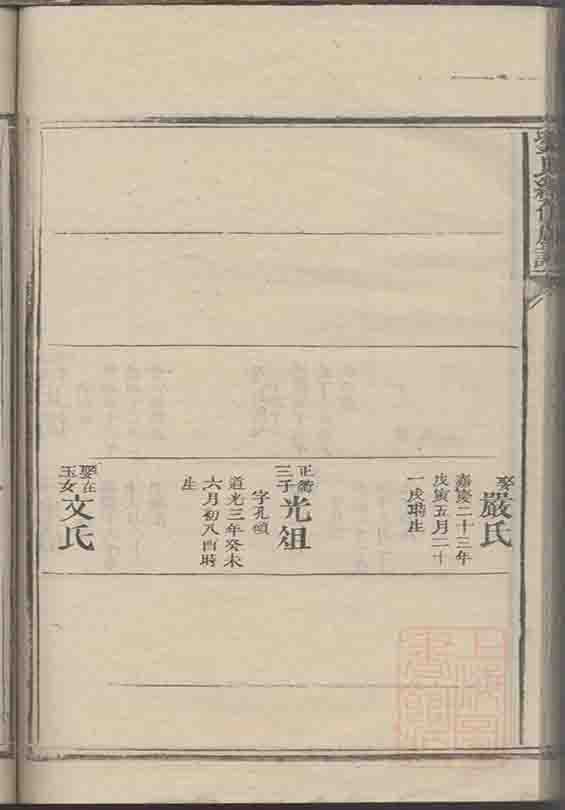 嚴氏
嘉慶二十三年
戊寅五月二十
一戌時生
正衢
三子
光祖
字孔碩
道光三年癸未
六月初八酉時
生
娶在
玉女
文氏
上海圖
書館藏